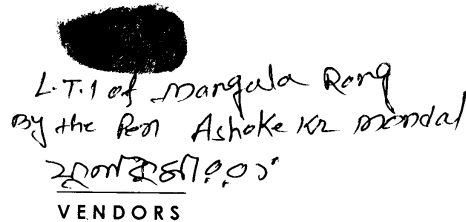 L.T.I of Mangala Rong
By the Pen Ashoke Kr Mondal
VENDORS